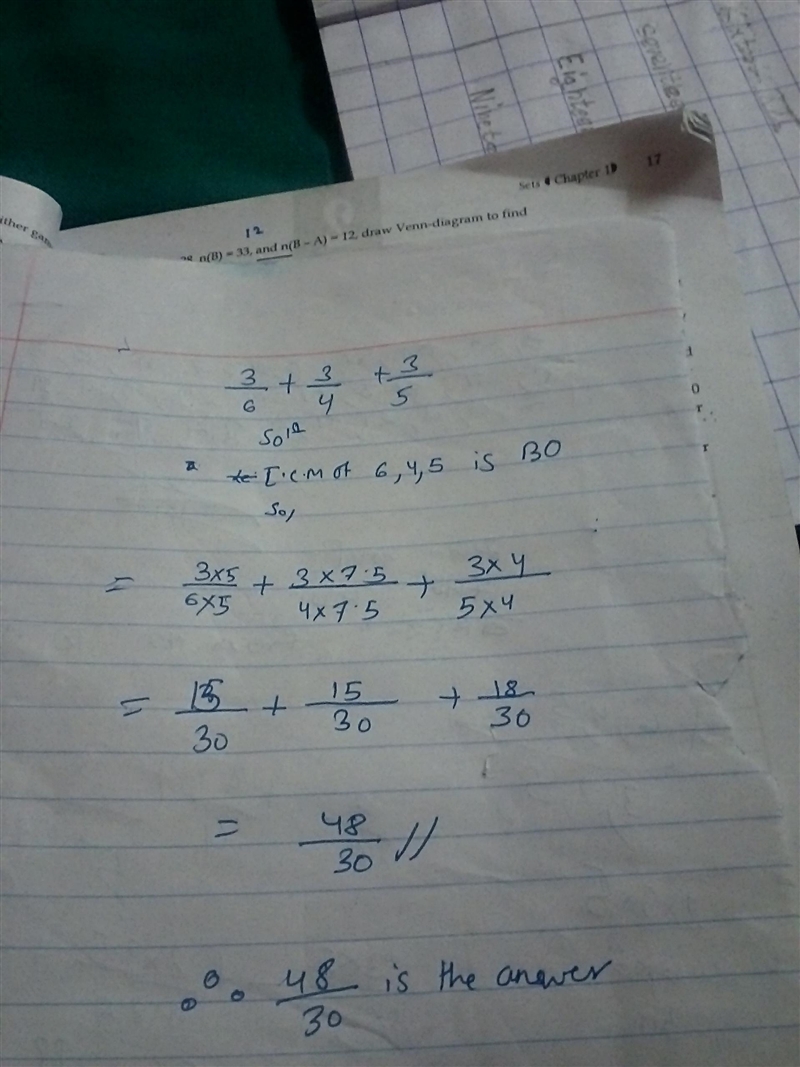 Nineto
Eighteen
Sets Chapter 1 17
12
n(B) = 33, and n(B – A) = 12, draw Venn-diagram to find
3/6 + 3/4 + 3/5
Solⁿ
L.C.M of 6,4,5 is 30
So,
= 3x5/6x5 + 3x7.5/4x7.5 + 3x4/5x4
= 15/30 + 15/30 + 18/30
= 48/30 //
∴ 48/30 is the answer